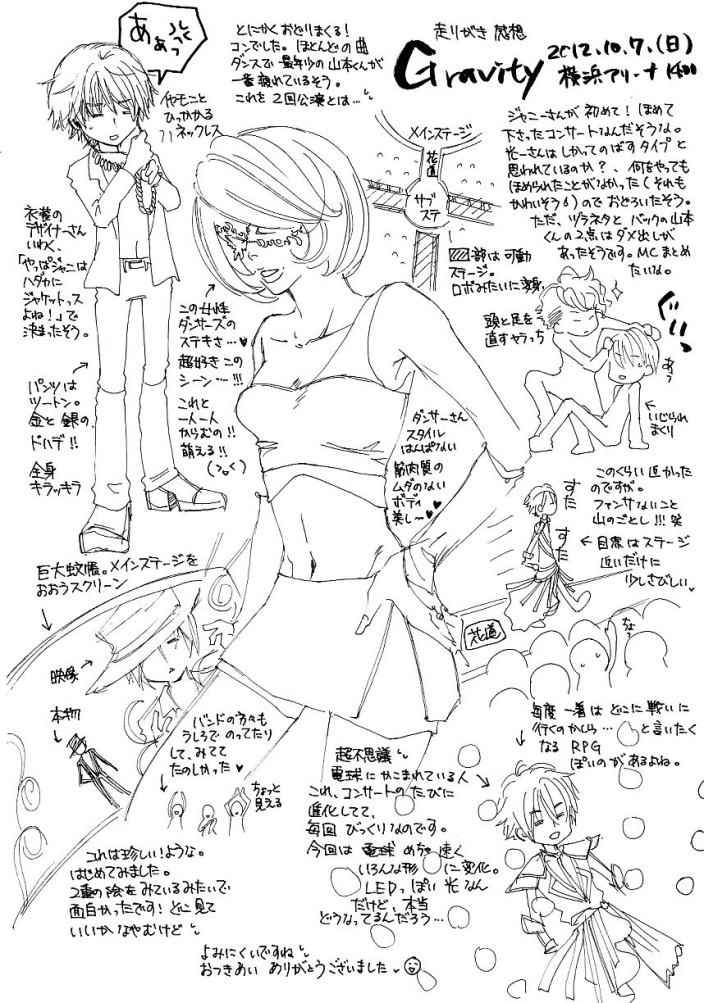 走りがき 感想
Gravity
2012.10.7.(日)
横浜アリーナ 1400
あぁっ
とにかく おどりまくる!
コンでした。ほとんどの曲
ダンスで 最年少の山本くんが
一番 疲れているそう。
これを 2回公演とは…
イヤモニと
ひっかかる
ネックレス
メインステージ
花道
サブ
ステ
部は可動
ステージ。
ロボみたいに変身。
ジャニーさんが 初めて! ほめて
下さったコンサートなんだそうな。
光一さんは しかってのばすタイプと
思われているのか?、何をやっても
ほめられたことがなかった(それも
かわいそう)ので おどろいたそう。
ただ、ヅラネタと バックの山本
くんの2点は ダメ出しが
あったそうです。MCまとめ
たいな。
衣装の
デザイナーさん
いわく、
「やっぱジャニは
ハダカに
ジャケットっス
よね!」で
決まったそう。
この女性
ダンサーズの
ステキさ…
超好き この
シーン…!!!
これと
一人一人
からむの!!
萌える!!
頭と足を
直すヤラっち
ぐいっ
あっ
いじられ
まくり
パンツは
ツートン。
金と銀の
ドハデ!!
全身
キラッキラ
ダンサーさん
スタイル
はんぱない
筋肉質の
ムダのない
ボディ
美し〜
このくらい近かった
のですが。
ファンサないこと
山のごとし!!! 笑
すた
すた
目席はステージ
近いだけに
少しさびしい
巨大蚊帳。メインステージを
おおうスクリーン
映像
本物
花道
バンドの方々も
うしろで のってたり
して、みてて
たのしかった
ちょっと
見える
超不思議
電球にかこまれている人
これ、コンサートのたびに
進化してて、
毎回 びっくりなのです。
今回は 電球 めちゃ速く
いろんな形に変化。
LEDっぽい光なん
だけど、本当
どうなってるんだろう…
毎度 一着は どこに戦いに
行くのかしら…と言いたく
なる RPG
ぽいのがあるよね。
これは珍しい!ような。
はじめてみました。
2重の絵をみているみたいで
面白かったです! どこ見て
いいかなやむけど
よみにくいですね
おつきあい ありがとうございました